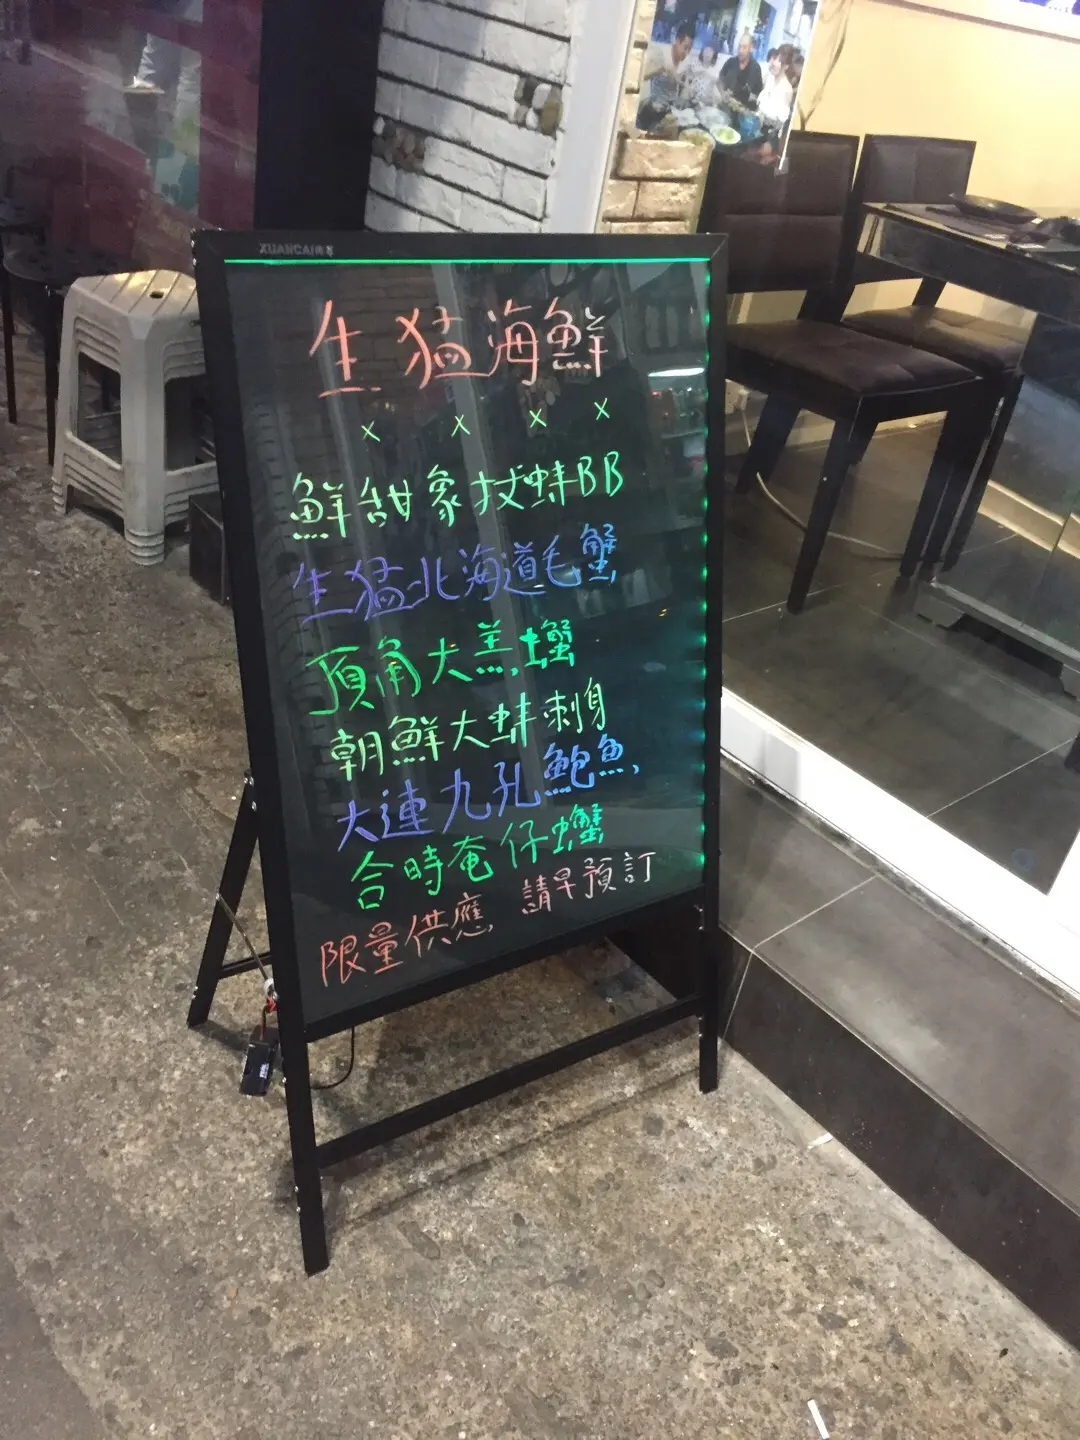 XUANCAI炫彩
生猛海鮮
x x x x
鮮甜象拔蚌BB
生猛北海道毛蟹
頂角大羔蟹
朝鮮大蚌刺身
大連九孔鮑魚
合時奄仔蟹
限量供應 請早預訂